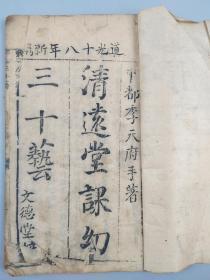 道光十八年新鐫
于都李天府手著
清遠堂課幼
三十藝
文德堂